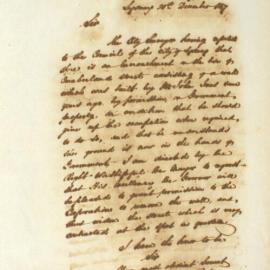 Sydney 20th December 1847
Sir
The City Surveyor having reported
to the Council of the City of Sydney that
there is an Encroachment on the line of
Cumberland Street consisting of a wall
which was built by Mr John Jones some
years ago by permission on Government
property, on condition that he should
give up the occupation when required
to do so, and that he understands
the ground is now in the hands of
Government - I am directed by the
Right Worshipful the Mayor to request
that His Excellency the Governor will
be pleased to grant permission to the
Corporation to remove the wall, and
thus widen the street which is very
contracted at the spot in question
I have the honor to be
Sir
Your most obedient Servant